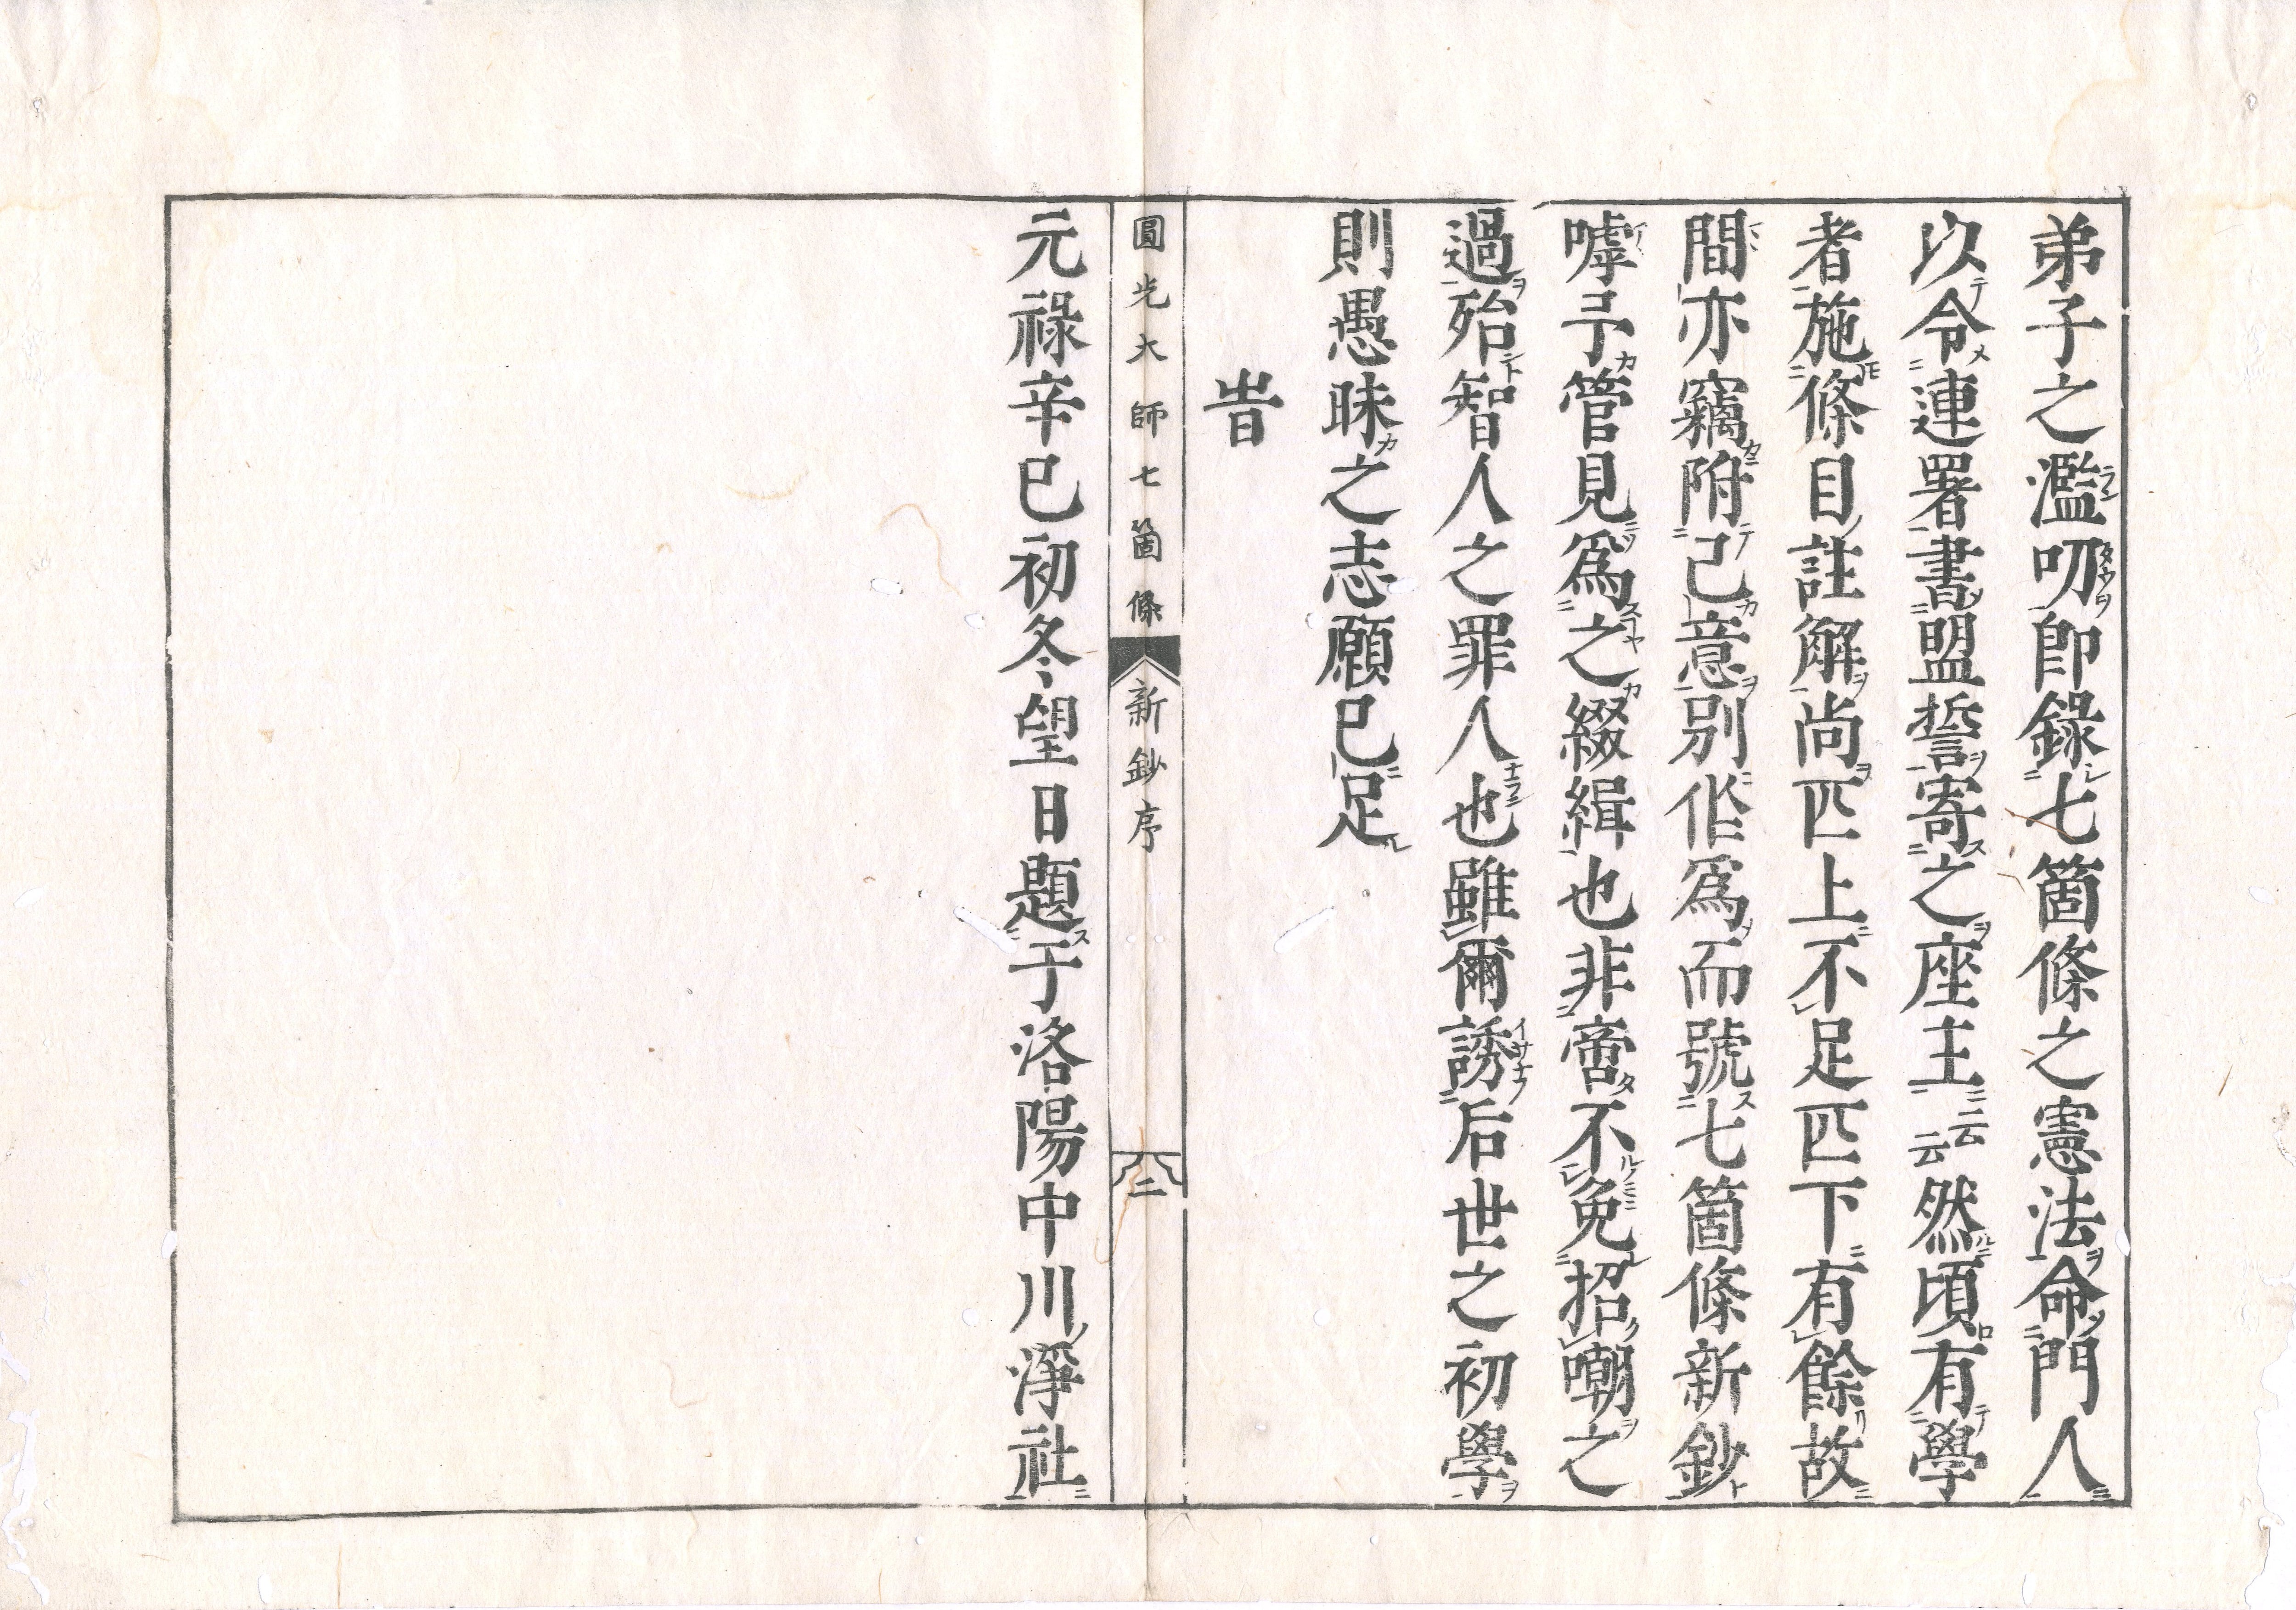 弟子之濫叨即錄七箇條之憲法命門人
以令連署書盟誓寄之座主云云然頃有學
者施條目註解尚匹上不足匹下有餘故
間亦竊附己意別作爲而號七箇條新鈔
嘑予管見爲之綴緝也非啻不免招嘲之
過殆智人之罪人也雖爾誘后世之初學
則愚昧之志願已足
旹
圓光大師七箇條 新鈔序 二
元祿辛巳初冬望日題于洛陽中川淨社